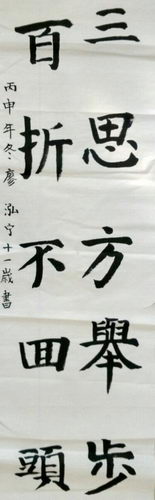 三思方舉步
百折不回頭
丙申年冬廖泓宁十一歲書